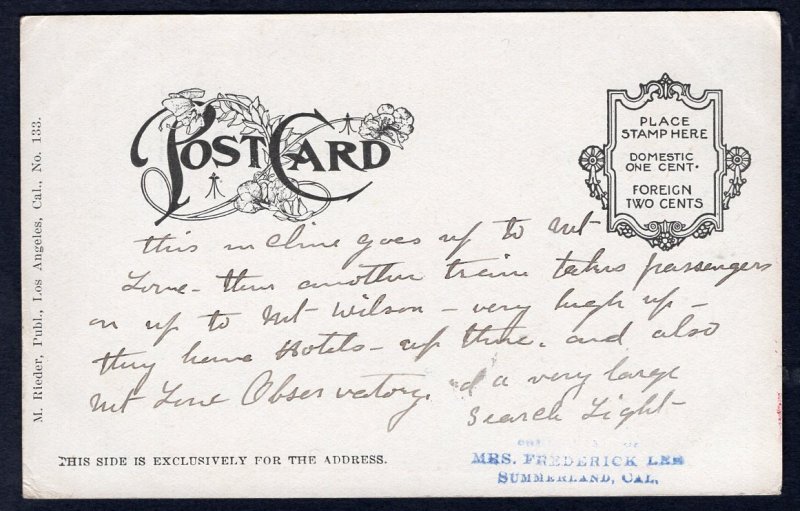 POST CARD
PLACE
STAMP HERE
DOMESTIC
ONE CENT.
FOREIGN
TWO CENTS
M. Rieder, Publ., Los Angeles, Cal., No. 133.
this incline goes up to Mt
Lowe - then another train takes passengers
on up to Mt - Wilson - very high up -
they have Hotels - up there. and also
Mt Lowe Observatory. & a very large
Search Light -
THIS SIDE IS EXCLUSIVELY FOR THE ADDRESS.
MRS. FREDERICK LEE
SUMMERLAND, CAL.